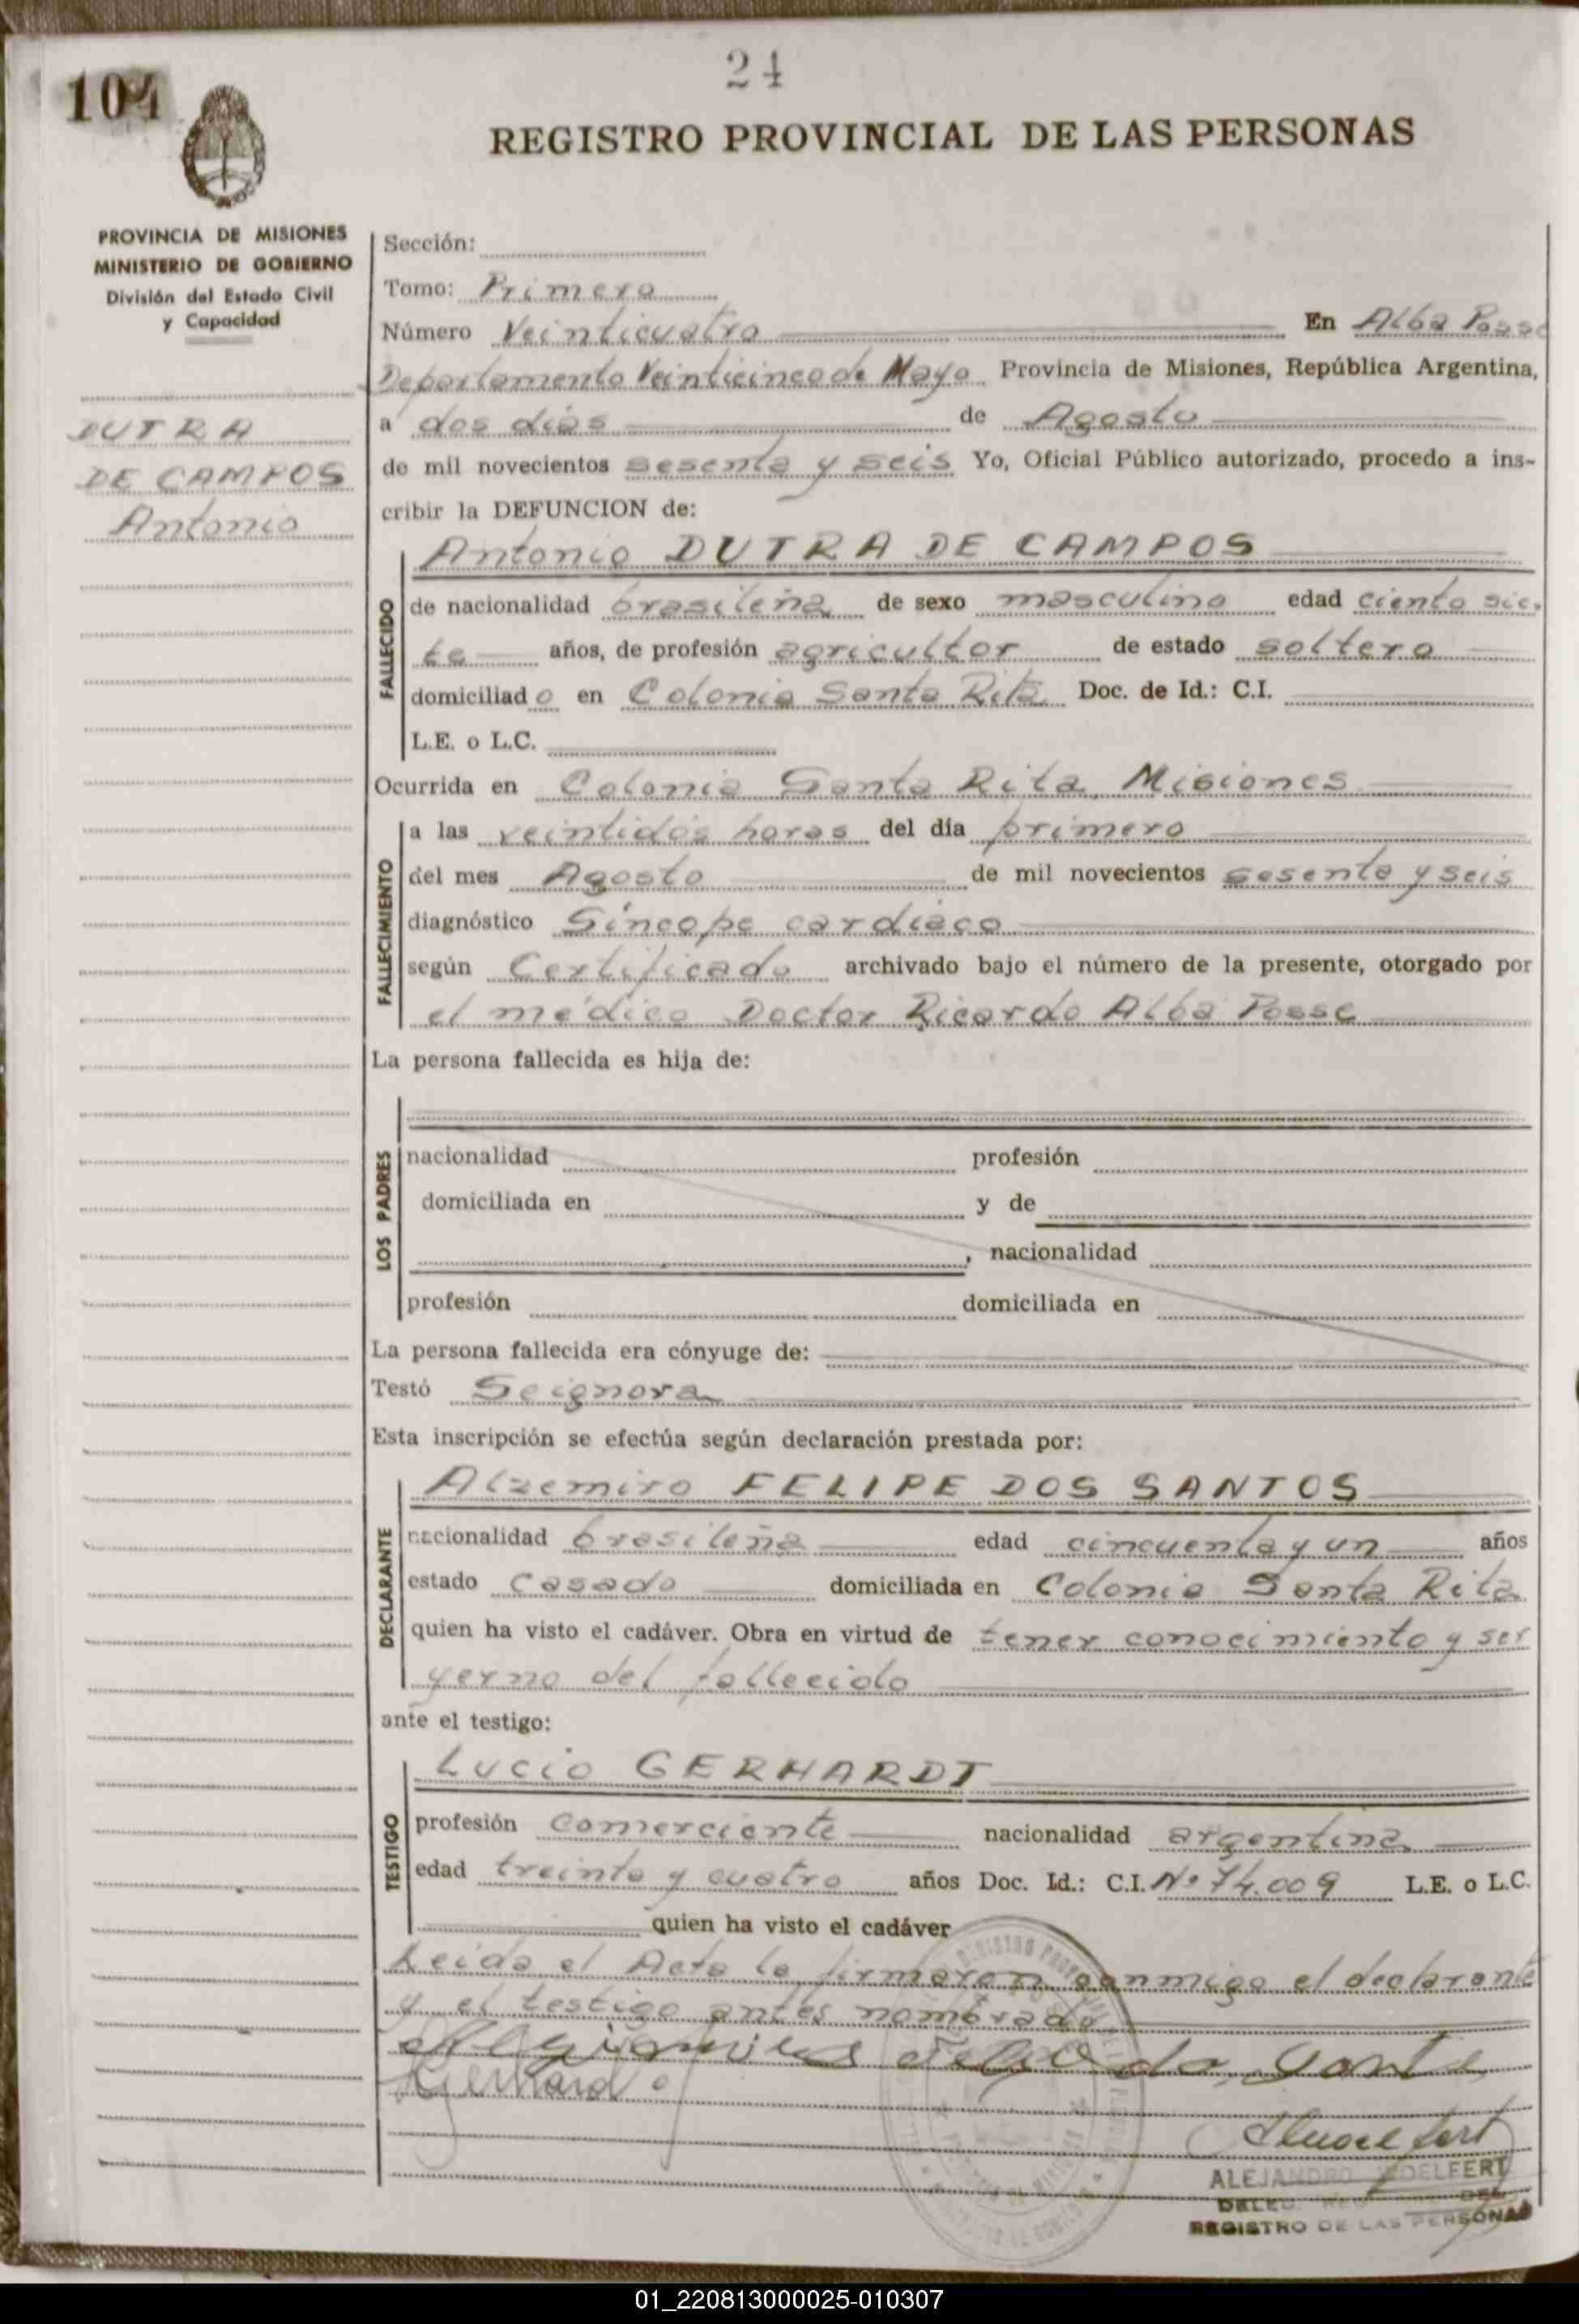 104
24
REGISTRO PROVINCIAL DE LAS PERSONAS
PROVINCIA DE MISIONES
MINISTERIO DE GOBIERNO
División del Estado Civil
y Capacidad
DUTRA
DE CAMPOS
Antonio
Sección:
Tomo: Primero
Número Veinticuatro En Alba Posse
Departamento Veinticinco de Mayo Provincia de Misiones, República Argentina,
a dos días de Agosto
de mil novecientos sesenta y seis Yo, Oficial Público autorizado, procedo a ins-
cribir la DEFUNCION de:
FALLECIDO
Antonio DUTRA DE CAMPOS
de nacionalidad brasileña de sexo masculino edad ciento sie-
te años, de profesión agricultor de estado soltero
domiciliado en Colonia Santa Rita Doc. de Id.: C.I.
L.E. o L.C.
Ocurrida en Colonia Santa Rita, Misiones
FALLECIMIENTO
a las veintidós horas del día primero
del mes Agosto de mil novecientos sesenta y seis
diagnóstico Síncope cardíaco
según Certificado archivado bajo el número de la presente, otorgado por
el médico Doctor Ricardo Alba Posse
La persona fallecida es hija de:
LOS PADRES
nacionalidad profesión
domiciliada en y de
, nacionalidad
profesión domiciliada en
La persona fallecida era cónyuge de:
Testó Se ignora
Esta inscripción se efectúa según declaración prestada por:
DECLARANTE
Alzemiro FELIPE DOS SANTOS
nacionalidad brasileña edad cincuenta y un años
estado Casado domiciliada en Colonia Santa Rita
quien ha visto el cadáver. Obra en virtud de tener conocimiento y ser
yerno del fallecido
ante el testigo:
TESTIGO
Lucio GERHARDT
profesión Comerciante nacionalidad argentina
edad treinta y cuatro años Doc. Id.: C.I. Nº 74.009 L.E. o L.C.
quien ha visto el cadáver
Leida el Acta la firmaron conmigo el declarante
y el testigo antes nombrado
ALEJANDRO
REGISTRO DE LAS PERSONAS
01_220813000025-010307